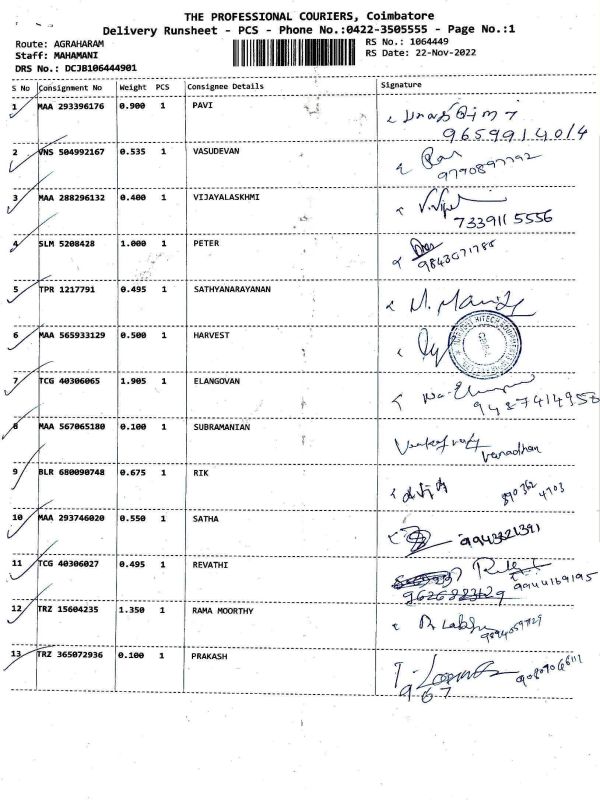 THE PROFESSIONAL COURIERS, Coimbatore
Delivery Runsheet - PCS - Phone No.:0422-3505555 - Page No.:1
Route: AGRAHARAM
RS No.: 1064449
Staff: MAHAMANI
RS Date: 22-Nov-2022
DRS No.: DCJB106444901
S No Consignment No Weight PCS Consignee Details Signature
1 MAA 293396176 0.900 1 PAVI
9659914014
2 VNS 504992167 0.535 1 VASUDEVAN
9790897792
3 MAA 288296132 0.400 1 VIJAYALASKHMI
7339115556
4 SLM 5208428 1.000 1 PETER
5 TPR 1217791 0.495 1 SATHYANARAYANAN
6 MAA 565933129 0.500 1 HARVEST
7 TCG 40306065 1.905 1 ELANGOVAN
9487414953
8 MAA 567065180 0.100 1 SUBRAMANIAN
varadhan
9 BLR 680090748 0.675 1 RIK
10 MAA 293746020 0.550 1 SATHA
9943821391
11 TCG 40306027 0.495 1 REVATHI
9944169195
12 TRZ 15604235 1.350 1 RAMA MOORTHY
13 TRZ 365072936 0.100 1 PRAKASH
967